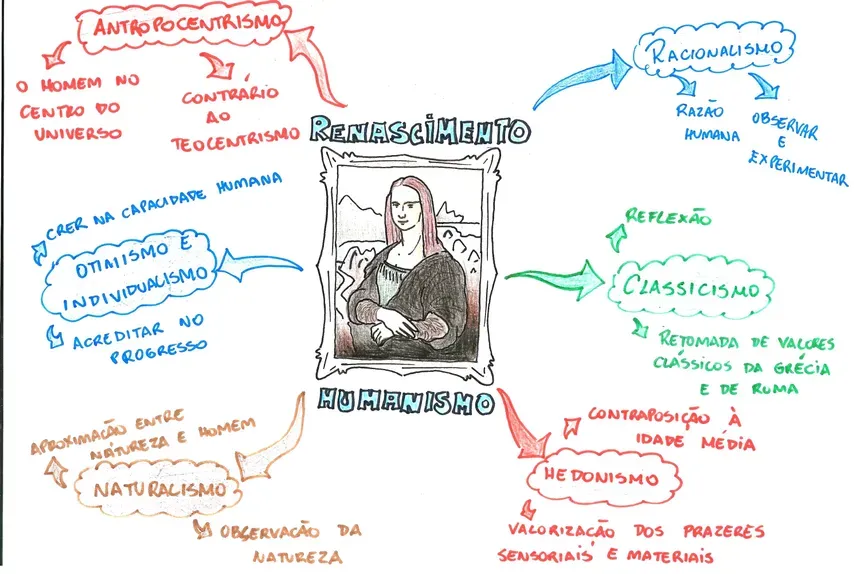 RENASCIMENTO
HUMANISMO
ANTROPOCENTRISMO
O HOMEM NO
CENTRO DO
UNIVERSO
CONTRÁRIO
AO
TEOCENTRISMO
RACIONALISMO
RAZÃO
HUMANA
OBSERVAR
E
EXPERIMENTAR
CRER NA CAPACIDADE HUMANA
OTIMISMO E
INDIVIDUALISMO
ACREDITAR NO
PROGRESSO
REFLEXÃO
CLASSICISMO
RETOMADA DE VALORES
CLÁSSICOS DA GRÉCIA
E DE ROMA
APROXIMAÇÃO ENTRE
NATUREZA E HOMEM
NATURALISMO
OBSERVAÇÃO DA
NATUREZA
CONTRAPOSIÇÃO À
IDADE MÉDIA
HEDONISMO
VALORIZAÇÃO DOS PRAZERES
SENSORIAIS E MATERIAIS